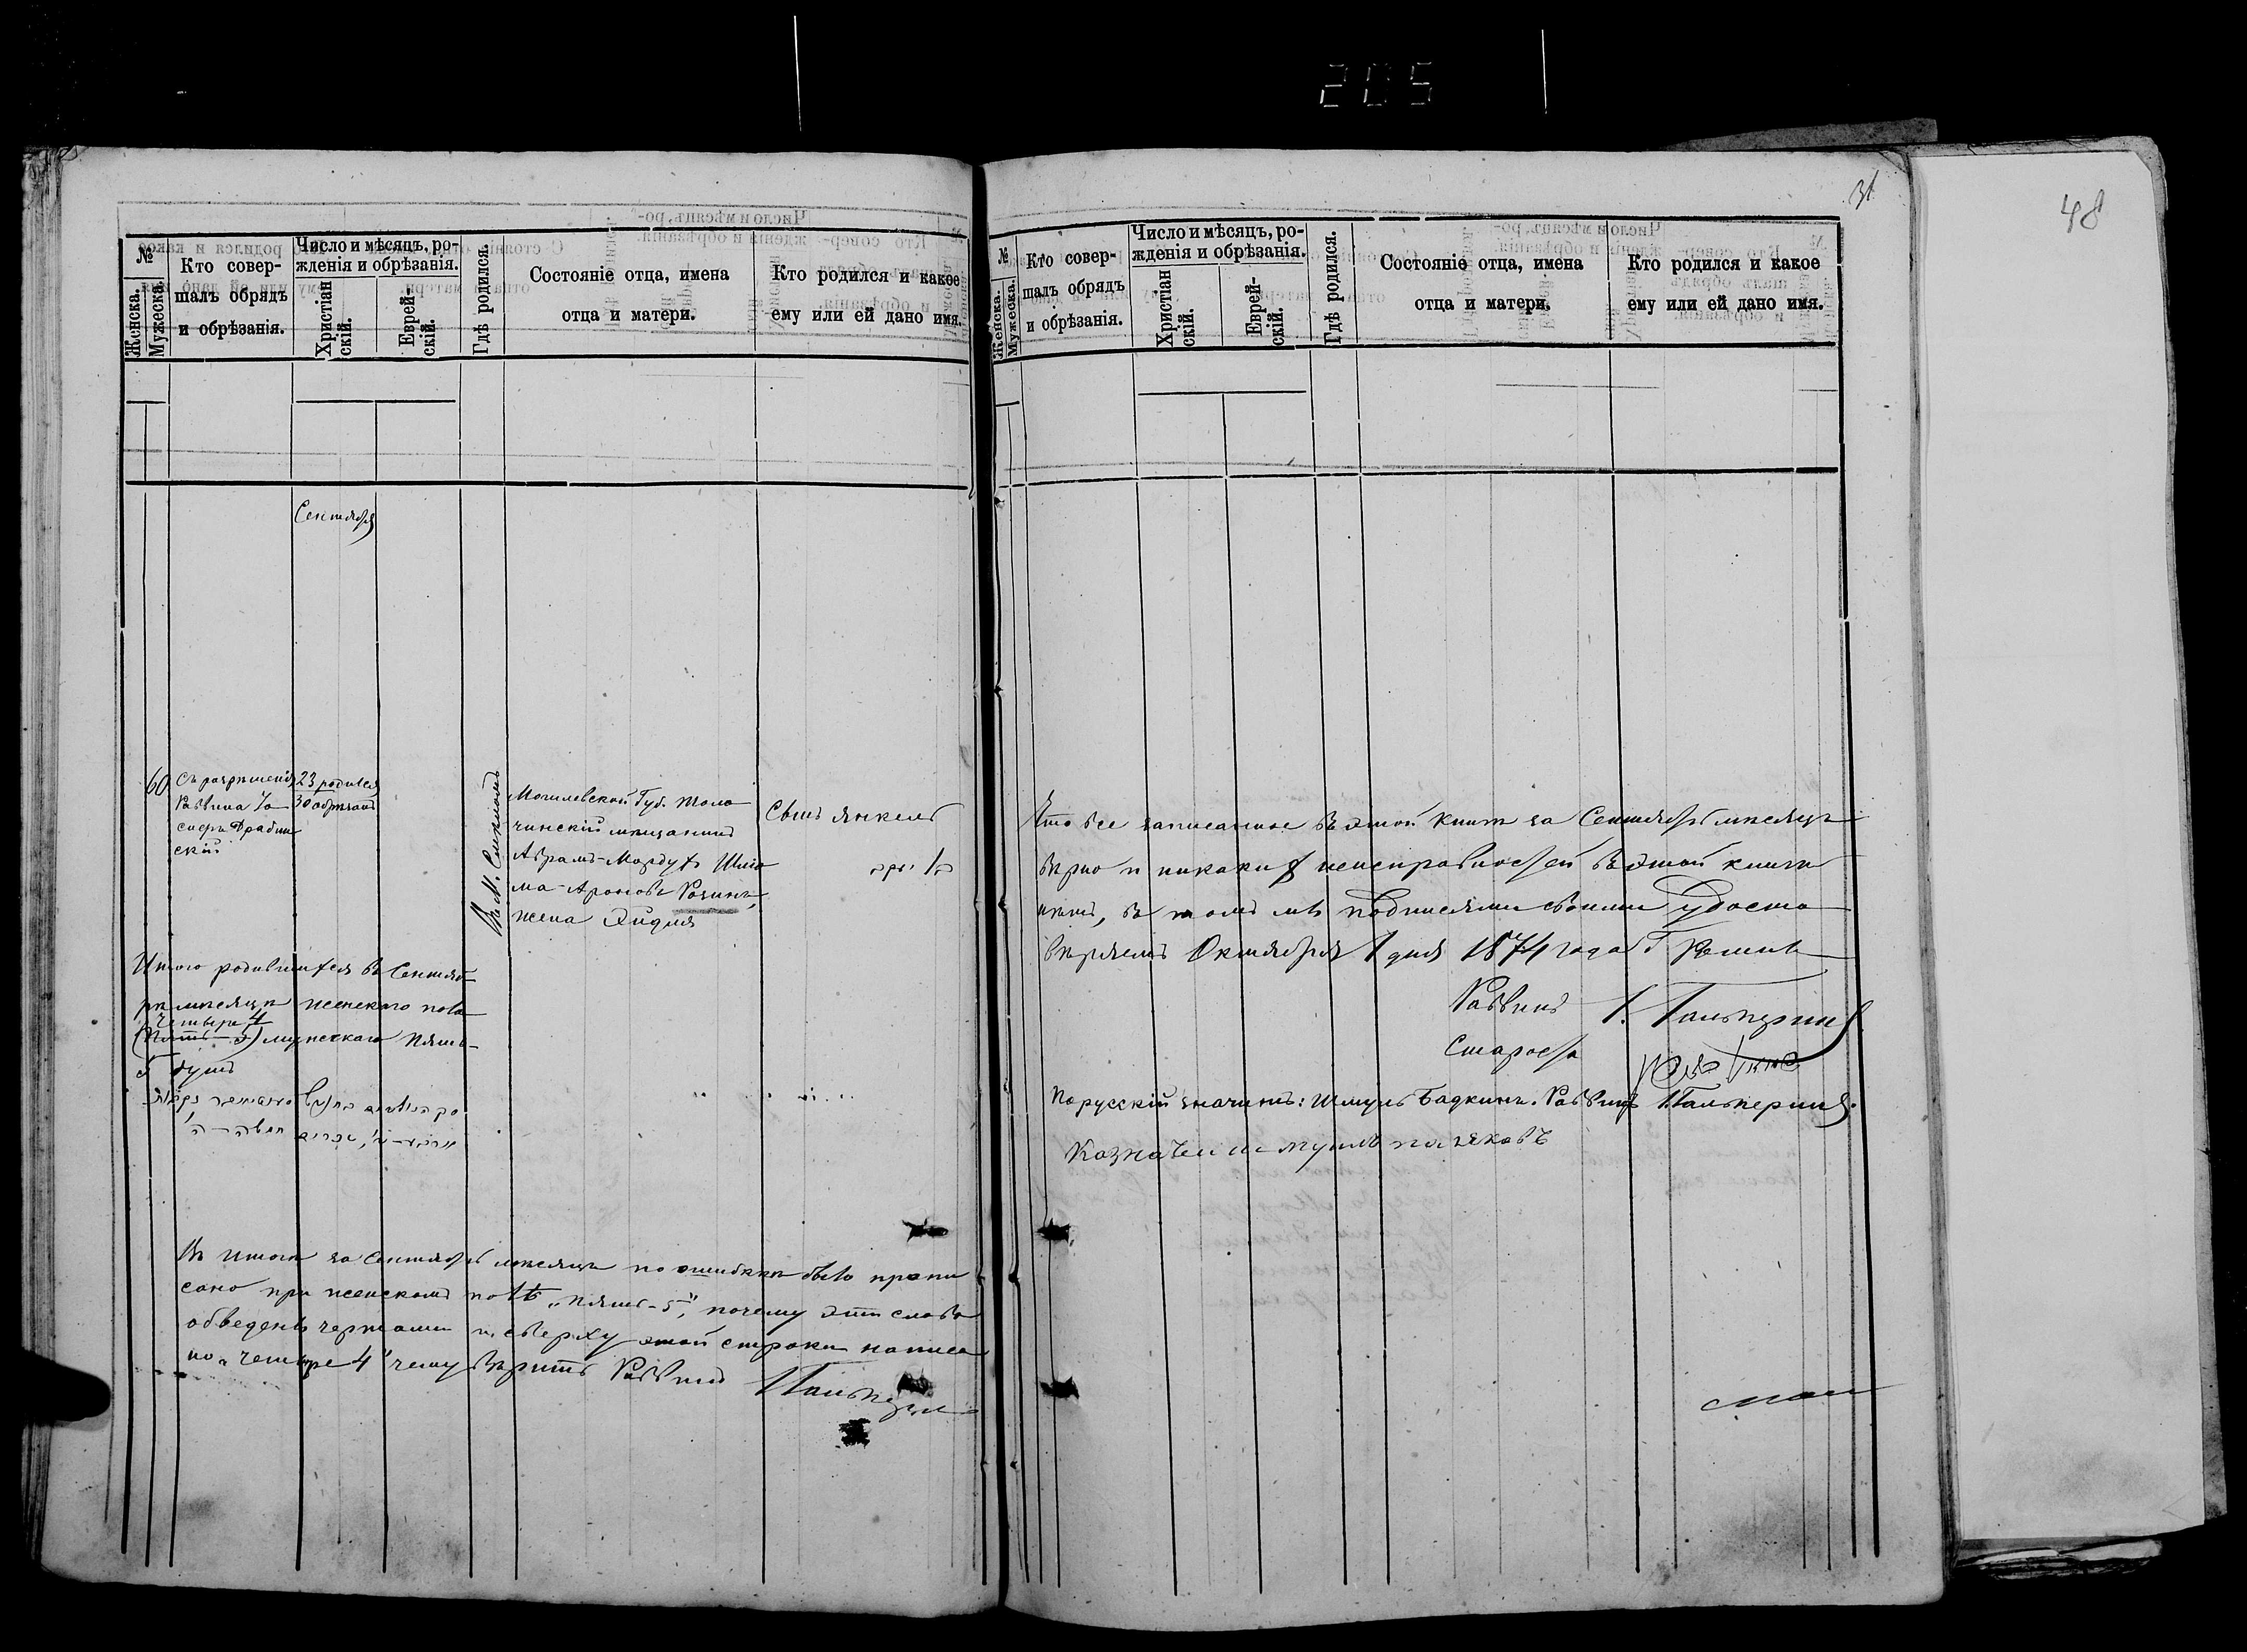 205
31
48
№
Женска.
Мужеска.
Кто совер-
шалъ обрядъ
и обрѣзанія.
Число и мѣсяцъ, ро-
жденія и обрѣзанія.
Христіан
скій.
Еврей-
скій.
Гдѣ родился.
Состояніе отца, имена
отца и матери.
Кто родился и какое
ему или ей дано имя.
Сентября
60
Съ разрѣшенія
Раввина
скій
23 родился
30 обрѣзанъ
Могилевской Губ. Толо
чинскій мѣщанинъ
Абрамъ-Мордухъ Шлио
ма-Ароновъ Разинъ,
жена Эйдля
Сынъ Янкель
Итого родившихся въ Сентяб-
рѣ мѣсяцѣ женскаго пола
Четыре 4
(Пять 5) мужескаго Пять-
5 душъ
Въ итогѣ за Сентябрь мѣсяцъ по ошибкѣ было пропи
сано при женскомъ полѣ „пять-5", почему эти слова
обведены чертами и сверху этой строки написа
но „Четыре 4" чему вѣритъ Раввинъ
Гальперинъ
№
Женска.
Мужеска.
Кто совер-
шалъ обрядъ
и обрѣзанія.
Число и мѣсяцъ, ро-
жденія и обрѣзанія.
Христіан
скій.
Еврей-
скій.
Гдѣ родился.
Состояніе отца, имена
отца и матери.
Кто родился и какое
ему или ей дано имя.
Что все записанное въ этой книгѣ за Сентябрь мѣсяцъ
вѣрно и никакихъ неисправностей въ этой книги
нѣтъ, въ томъ мы подписями своими удосто
вѣряемъ Октября 1 дня 1874 года
Раввинъ Гальперинъ
Староста
По русскій значитъ: Шмуль Бадкинъ. Раввинъ Гальперинъ.
Казначеи шмуиль